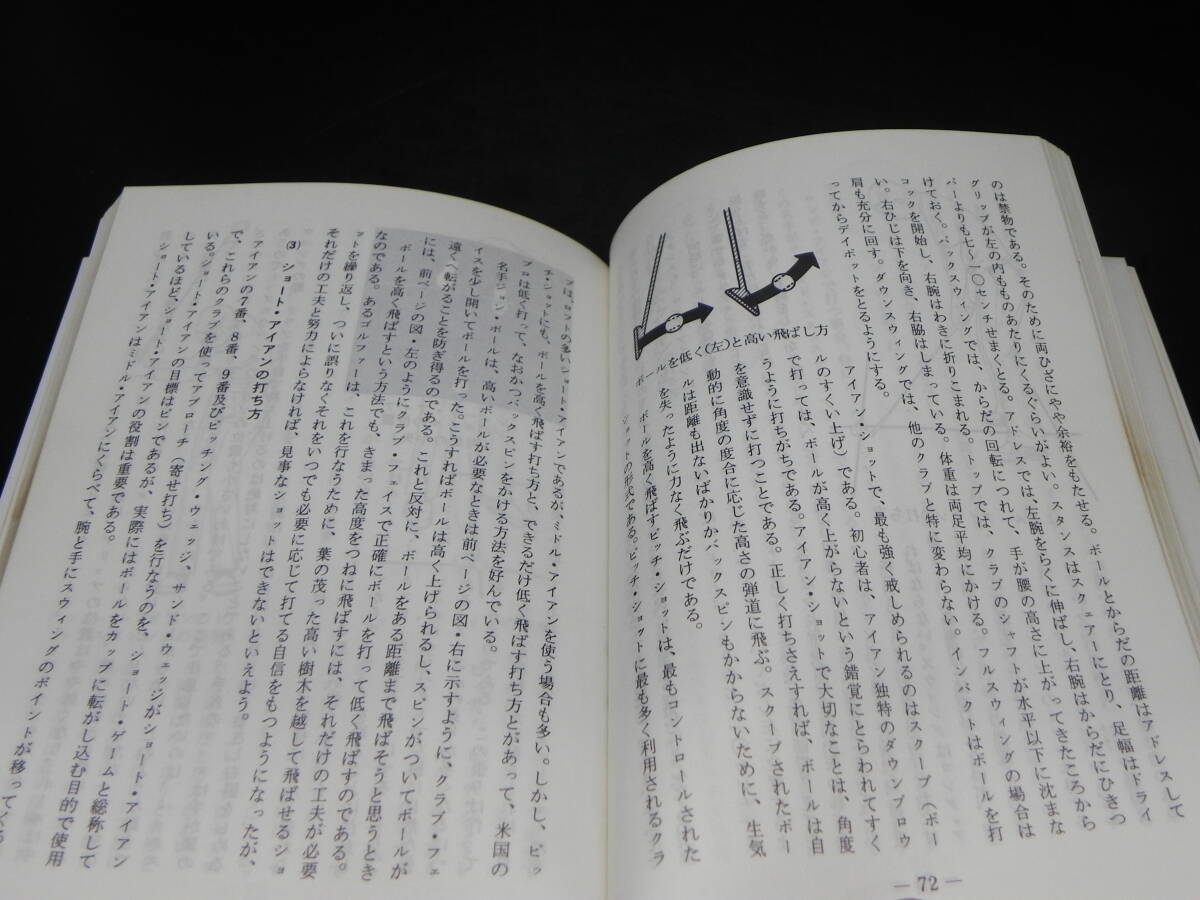 のは禁物である。そのために両ひざにやや余裕をもたせる。ボールとからだの距離はアドレスして
グリップが左の内もものあたりにくるぐらいがよい。スタンスはスクェアーにとり、足幅はドライ
バーよりも七〜一〇センチせまくとる。アドレスでは、左腕をらくに伸ばし、右腕はからだにひきつ
けておく。バックスウィングでは、からだの回転につれて、手が腰の高さに上がってきたころから
コックを開始し、右腕はわきに折りこまれる。トップでは、クラブのシャフトが水平以下に沈まな
い。右ひじは下を向き、右脇はしまっている。体重は両足平均にかける。フルスウィングの場合は
肩も充分に回す。ダウンスウィングでは、他のクラブと特に変わらない。インパクトはボールを打
ってからデイボットをとるようにする。
アイアン・ショットで、最も強く戒しめられるのはスクープ（ボー
ルのすくい上げ）である。初心者は、アイアン独特のダウンブロウ
で打っては、ボールが高く上がらないという錯覚にとらわれてすく
うように打ちがちである。アイアン・ショットで大切なことは、角度
を意識せずに打つことである。正しく打ちさえすれば、ボールは自
動的に角度の度合に応じた高さの弾道に飛ぶ。スクープされたボー
ルは距離も出ないばかりかバックスピンもかからないために、生気
を失ったように力なく飛ぶだけである。
ボールを高く飛ばすピッチ・ショットは、最もコントロールされた
ショットの形式である。ピッチ・ショットに最も多く利用されるクラ
ボールを低く（左）と高い飛ばし方
— 72 —
ブは、ロフトの多いショート・アイアンであるが、ミドル・アイアンを使う場合も多い。しかし、ピッ
チ・ショットにも、ボールを高く飛ばす打ち方と、できるだけ低く飛ばす打ち方とがあって、米国の
プロは低く打って、なおかつバックスピンをかける方法を好んでいる。
名手ジョン・ボールは、高いボールが必要なときは前ページの図・右に示すように、クラブ・フェ
イスを少し開いてボールを打った。こうすればボールは高く上げられるし、スピンがついてボールが
遠くへ転がることを防ぎ得るのである。これと反対に、ボールをある距離まで飛ばそうと思うとき
には、前ページの図・左のようにクラブ・フェイスで正確にボールを打って低く飛ばすのである。
ボールを高く飛ばすという方法でも、きまった高度をつねに飛ばすには、それだけの工夫が必要
なのである。あるゴルファーは、これを行なうために、葉の茂った高い樹木を越して飛ばせるショ
ットを繰り返し、ついに誤りなくそれをいつでも必要に応じて打てる自信をもつようになったが、
それだけの工夫と努力によらなければ、見事なショットはできないといえよう。
(3) ショート・アイアンの打ち方
アイアンの7番、8番、9番及びピッチング・ウェッジ、サンド・ウェッジがショート・アイアン
で、これらのクラブを使ってアプローチ（寄せ打ち）を行なうのを、ショート・ゲームと総称して
いる。ショート・アイアンの目標はピンであるが、実際にはボールをカップに転がし込む目的で使用
しているほど、ショート・アイアンの役割は重要である。
ショート・アイアンはミドル・アイアンにくらべて、腕と手にスウィングのポイントが移ってくる